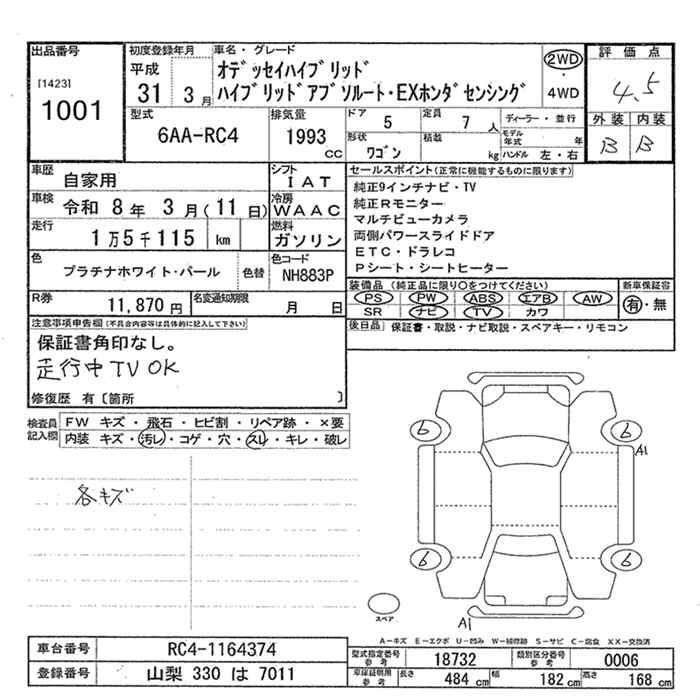 出品番号
[1423]
1001
初度登録年月
平成
31 3月
車名・グレード
オデッセイハイブリッド
ハイブリッドアブソルート・EXホンダセンシング
2WD
・
4WD
評価点
4.5
外装 内装
B B
型式
6AA-RC4
排気量
1993
CC
ドア
5
定員
7 人
ディーラー・並行
形状
ワゴン
積載
kg
モデル年式 年
ハンドル 左・右
車歴
自家用
シフト
IAT
車検
令和 8年 3月(11日)
冷房
WAAC
走行
1万5千115 km
燃料
ガソリン
色
プラチナホワイト・パール
色替
色コード
NH883P
R券
11,870円
名変通知期限
月 日
セールスポイント(正常に機能するものに限ります)
純正9インチナビ・TV
純正Rモニター
マルチビューカメラ
両側パワースライドドア
ETC・ドラレコ
Pシート・シートヒーター
装備品(純正品に限り○をつけてください)
PS PW ABS エアB AW
SR ナビ TV カワ
新車保証書
有・無
後日品 保証書・取説・ナビ取説・スペアキー・リモコン
注意事項申告欄(不具合内容等は具体的に記入して下さい)
保証書角印なし。
走行中TV OK
修復歴 有〔箇所 〕
検査員
記入欄
FW キズ・飛石・ヒビ割・リペア跡・×要
内装 キズ・汚レ・コゲ・穴・スレ・キレ・破レ
各キズ
6 6
A1
6 6
A1
スペア
A-キズ E-エクボ U-凹み W-補修跡 S-サビ C-腐食 XX-交換済
車台番号 RC4-1164374
登録番号 山梨 330 は 7011
型式指定番号
参考
18732
類別区分番号
参考
0006
車庫証明用
参考
長さ 484 cm 幅 182 cm 高さ 168 cm